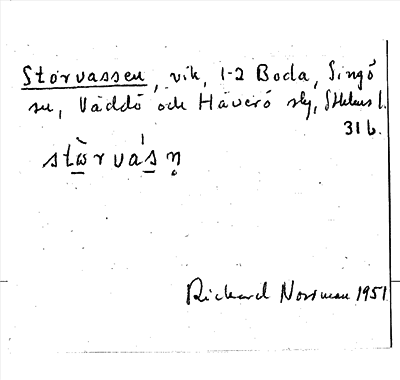 Storvassen, vik, 1-2 Boda, Singö
sn, Väddö och Häverö slg, Sthlms l.
31 b.
stòrvás̱ṇ
Richard Norrman 1951